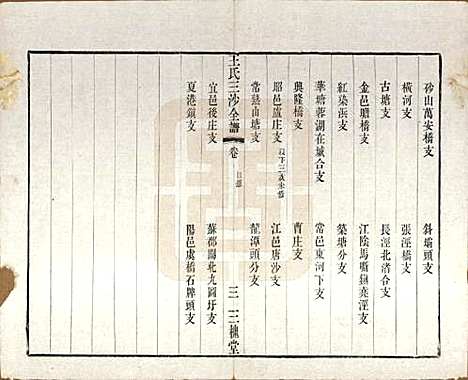 砂山萬安橋支 斜壩頭支
橫河支 張涇橋支
古塘支 長涇北渚合支
金邑膽橋支 江陰馬嘶鎮堯涇支
紅染浜支 築塘分支
華塘蓉湖在城合支 常邑東河下支
興隆橋支 曹庄支
昭邑盧庄支 以下三支未修 江邑唐沙支
常熟山塘支 龍潭頭分支
王氏三沙全譜 卷 目錄 三 三槐堂
宜邑後庄支 蘇郡閶北九圖圩支
夏港鎮支 陽邑虞橋石牌頭支